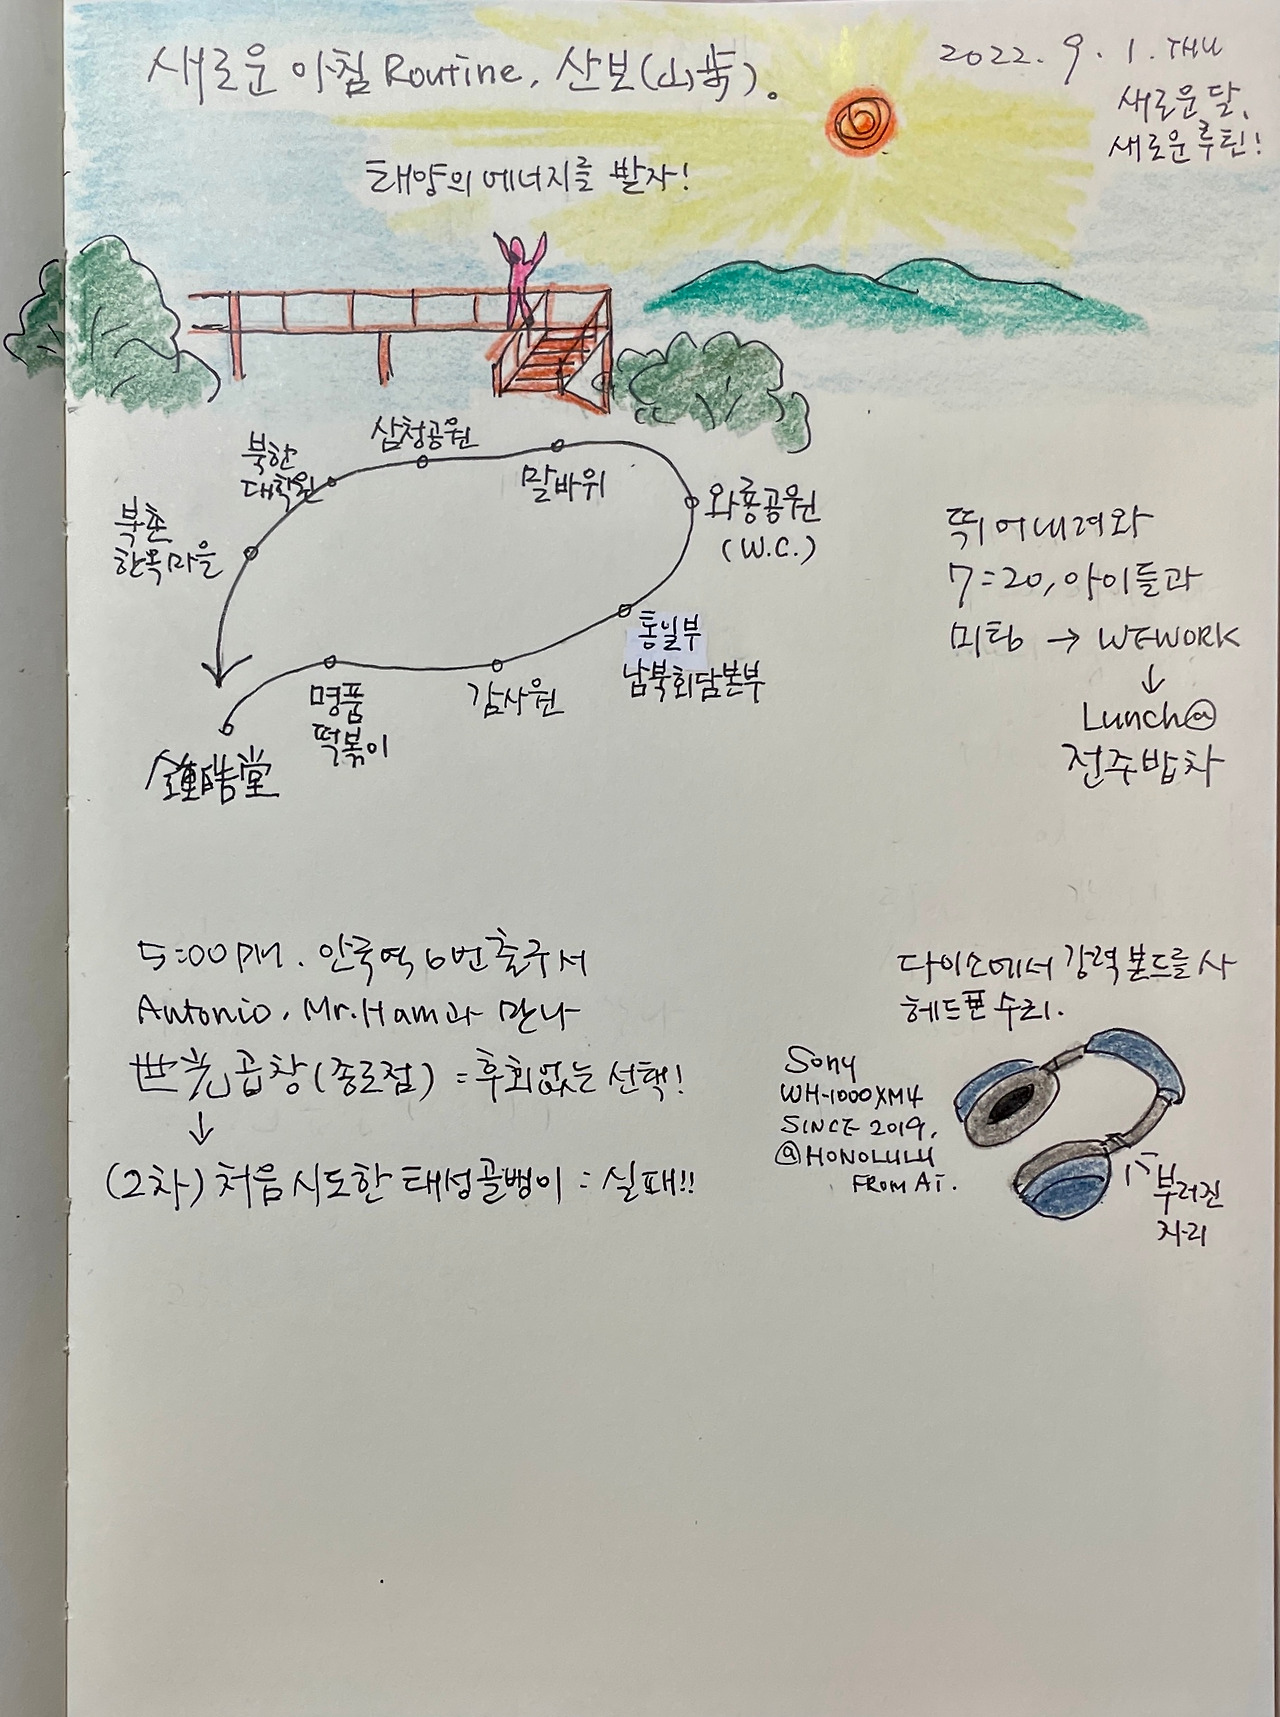 새로운 아침 Routine, 산보(山步)。
2022. 9. 1. THU
새로운 달,
새로운 루틴!
태양의 에너지를 받자!
삼청공원
북한
대학원
말바위
와룡공원
(W.C.)
북촌
한옥마을
통일부
남북회담본부
감사원
명품
떡볶이
鍾皓堂
뛰어내려와
7:20, 아이들과
미팅 → WEWORK
↓
Lunch@
전주밥차
5:00 PM. 안국역 6번출구서
Antonio, Mr. Ham과 만나
世光곱창(종로점) = 후회없는 선택!
↓
(2차) 처음 시도한 태성골뱅이 = 실패!!
다이소에서 강력본드를 사
헤드폰 수리.
Sony
WH-1000XM4
SINCE 2019,
@HONOLULU
FROM AJ.
부러진
자리